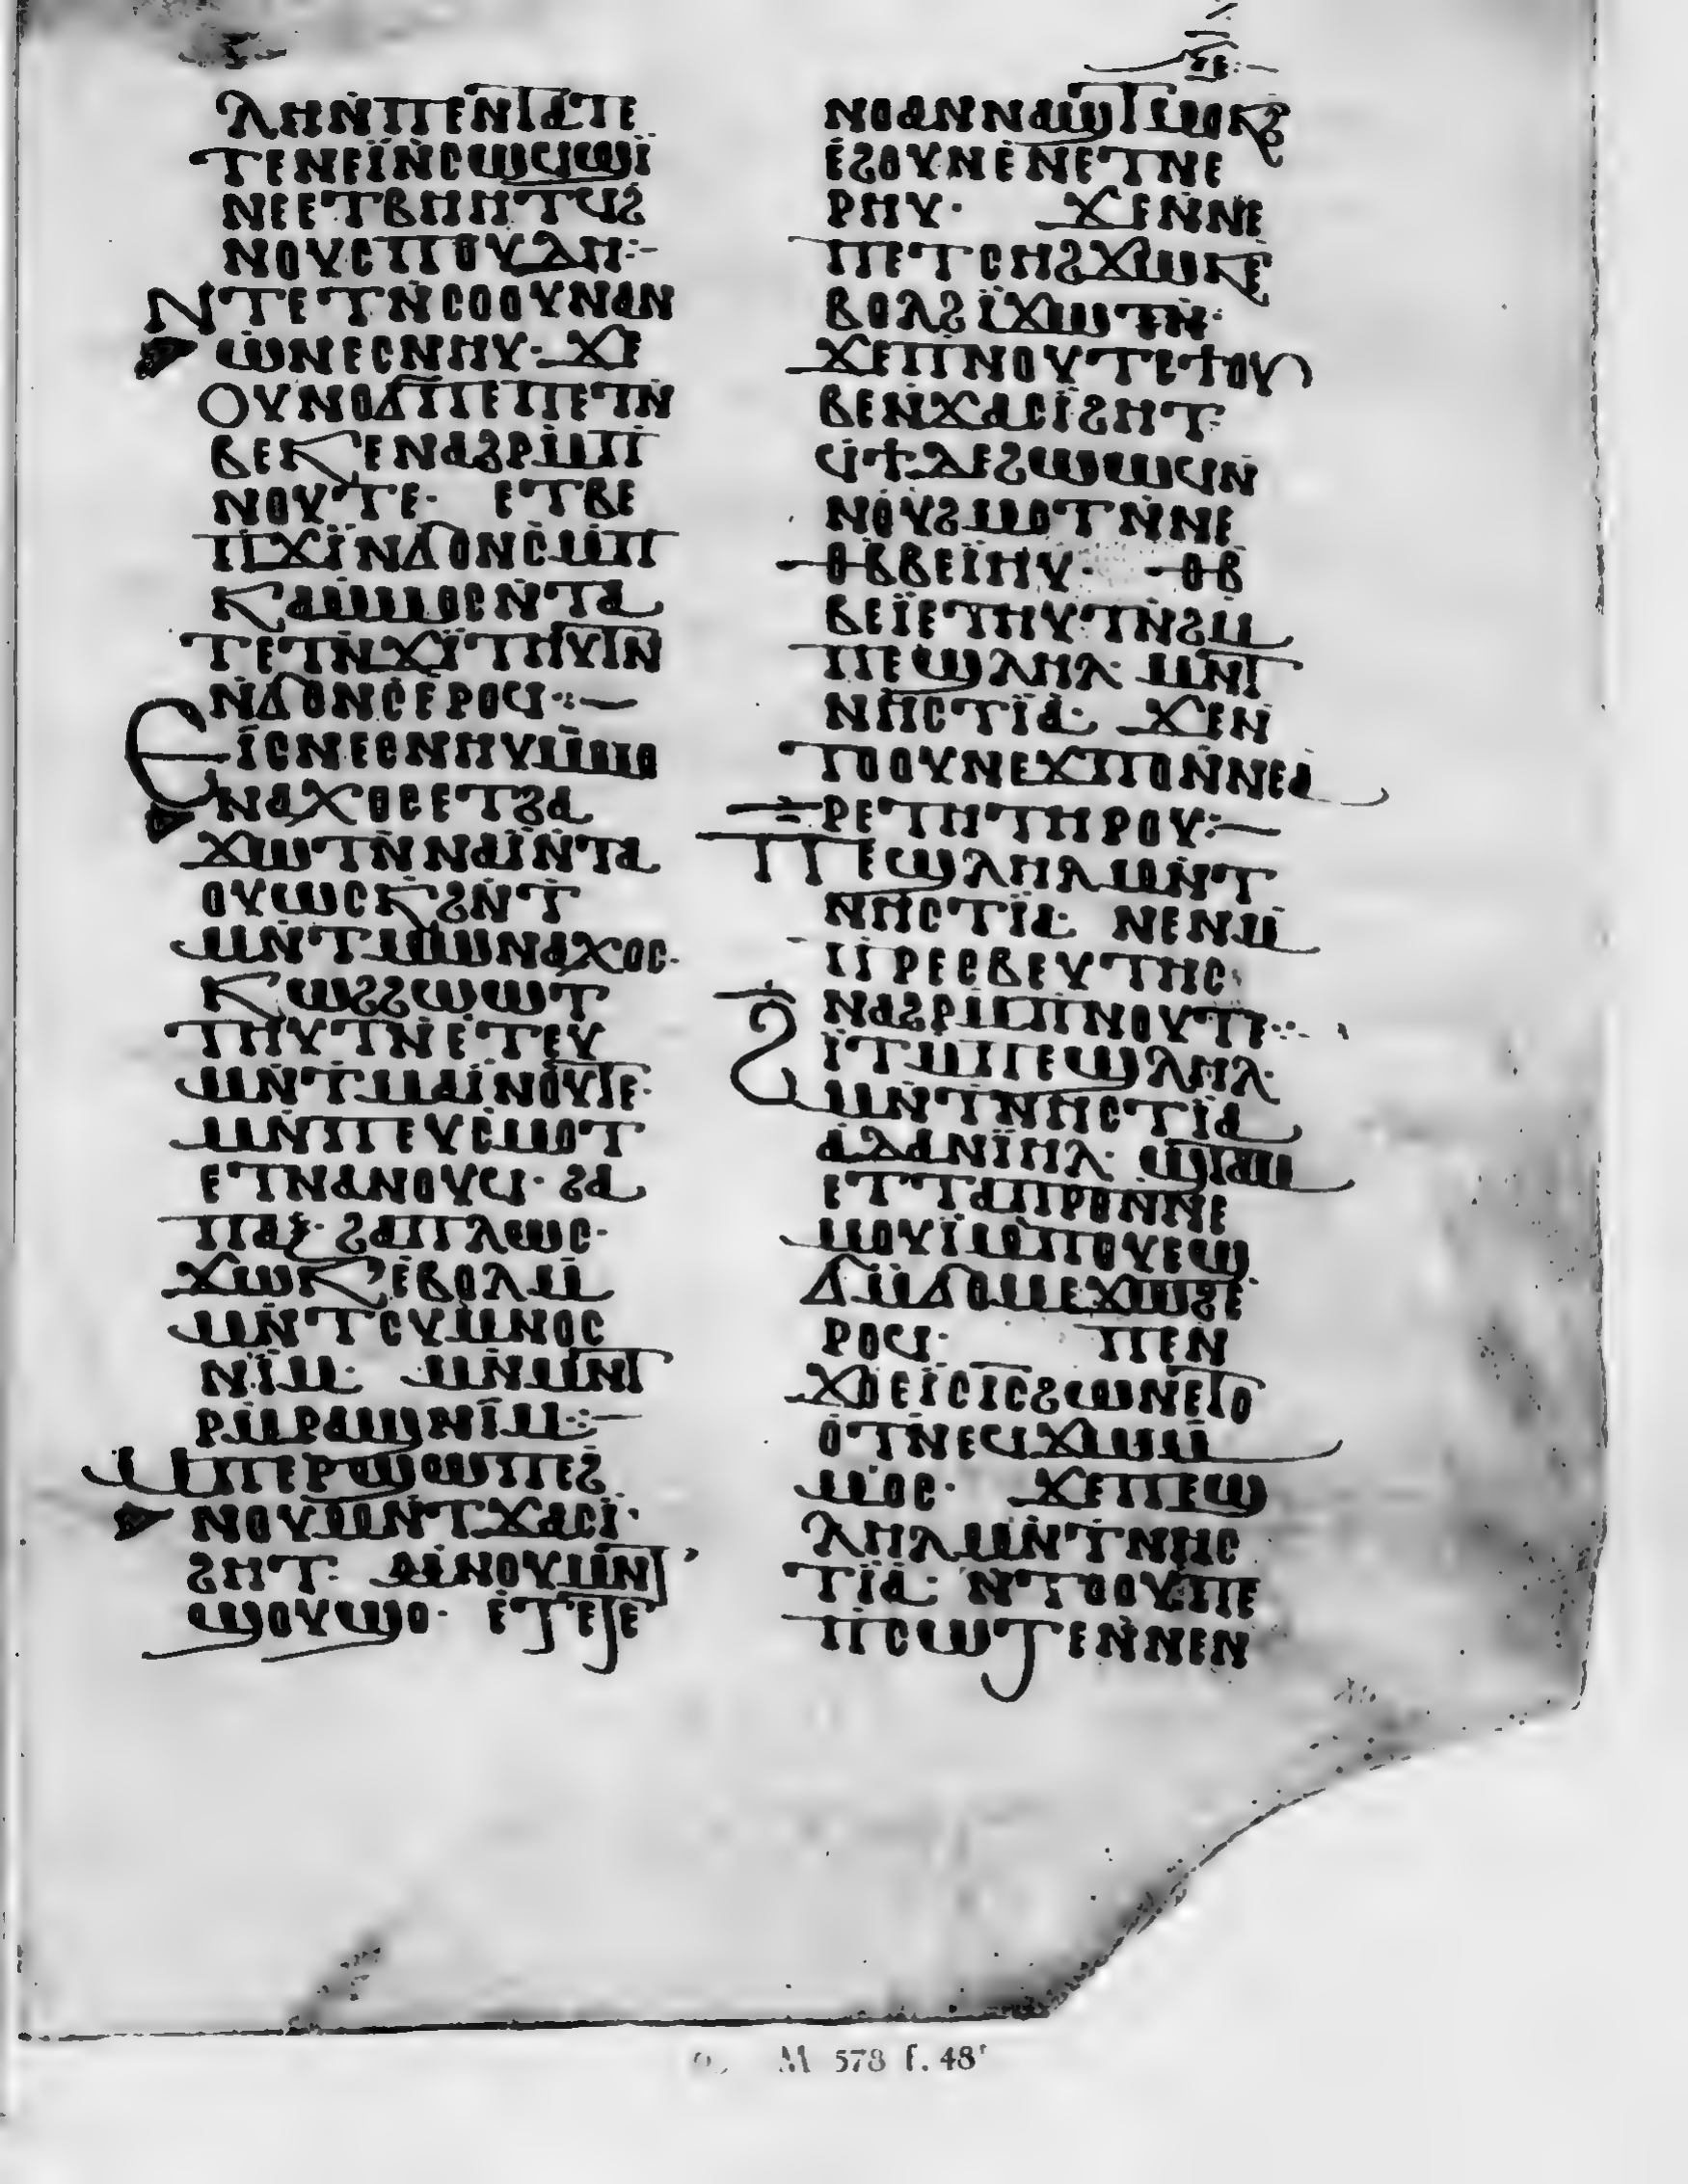 ϥⲉ
ⲗⲏⲛⲡⲉⲛⲧⲁⲧⲉ
ⲧⲉⲛⲉⲓ̈ⲛ̇ⲥⲱϥϣⲓ̈
ⲛⲉⲉⲧⲃⲏⲏⲧϥϩ
ⲛⲟⲩⲥⲡⲟⲩⲇⲏ:-
ⲛⲧⲉⲧⲛ̇ⲥⲟⲟⲩⲛⲁⲛ
ⲱ̇ⲛⲉⲥⲛⲏⲩ· ϫⲉ
ⲟⲩⲛⲟϭⲡⲉⲡⲉⲧⲛ̇
ⲃⲉⲕⲉⲛⲁϩⲣⲙ̇ⲡ
ⲛⲟⲩⲧⲉ· ⲉⲧⲃⲉ
ⲡϫⲓ̈ⲛϭⲟⲛⲥ̇ⲙ̇ⲡ
ⲕⲁⲙⲙⲟⲥⲛ̇ⲧⲁ
ⲧⲉⲧⲛ̇ϫⲓ̈ⲧⲏⲩⲧⲛ̇
ⲛ̇ϭⲟⲛⲥ̇ⲉⲣⲟϥ:—
ⲉⲓ̈ⲥⲛⲉⲥⲛⲏⲩⲙ̇ⲙⲟ
ⲛⲁⲭⲟⲥⲉⲧϩⲁ
ϫⲱⲧⲛ̇ⲛⲁⲓ̈ⲛ̇ⲧⲁ
ⲟⲩⲱⲥⲕϩⲛ̇ⲧ
ⲙⲛ̇ⲧⲙⲟⲛⲁⲭⲟⲥ·
ⲕⲱϩϩⲱⲱⲧ
ⲧⲏⲩⲧⲛ̇ⲉ̇ⲧⲉⲩ
ⲙⲛ̇ⲧⲙⲁⲓ̈ⲛⲟⲩⲧⲉ·
ⲙⲛ̇ⲡⲉⲩⲥⲙⲟⲧ
ⲉⲧⲛⲁⲛⲟⲩϥ· ϩⲁ
ⲡⲁⲝ· ϩⲁⲡⲗⲱⲥ·
ϫⲱⲕⲉ̇ⲃⲟⲗⲙ̇
ⲙⲛ̇ⲧⲥⲩⲙ̇ⲛⲟⲥ
ⲛⲓ̈ⲙ· ⲙⲛ̇ⲙⲛ̇ⲧ
ⲣⲙ̇ⲣⲁϣⲛⲓ̈ⲙ:—
ⲙ̇ⲡⲉⲣϣⲱⲡⲉϩ
ⲛⲟⲩⲙⲛ̇ⲧϫⲁⲥⲓ̈·
ϩⲏⲧ· ⲁⲓ̈ⲛⲟⲩⲙⲛ̇ⲧ
ϣⲟⲩϣⲟ· ⲉⲧⲉⲧⲉ
ⲛⲟⲁⲛⲛⲁϣⲧⲙⲟⲕϩ
ⲉ̇ϩⲟⲩⲛⲉ̇ⲛⲉⲧⲛⲉ
ⲣⲏⲩ· ϫⲉⲛ̇ⲛⲉ
ⲡⲉⲧⲥⲏϩϫⲱⲕⲉ̇
ⲃⲟⲗϩⲓ̈ϫⲱⲧⲛ̇·
ϫⲉⲡⲛⲟⲩⲧⲉϯⲟⲩ
ⲃⲉⲛ̇ϫⲁⲥⲓ̈ϩⲏⲧ·
ϥϯⲇⲉϩⲱⲱϥⲛ̇
ⲛⲟ̇ⲩϩⲙⲟⲧⲛ̇ⲛⲉ
ⲑⲃ̇ⲃⲉⲓ̈ⲏⲩ· ⲑⲃ
ⲃⲉⲓ̈ⲉⲧⲏⲩⲧⲛ̇ϩⲙ̇
ⲡⲉϣⲗⲏⲗ· ⲙⲛ̇ⲧ
ⲛⲏⲥⲧⲓ̈ⲁ· ϫⲉⲛ
ⲧⲟⲟⲩⲛⲉϫⲡⲟⲛ̇ⲛⲉⲁ
ⲣⲉⲧⲏⲧⲏⲣⲟⲩ:—
ⲡⲉϣⲗⲏⲗⲙⲛ̇ⲧ
ⲛⲏⲥⲧⲓ̈ⲁ· ⲛⲉⲛⲙ̇
ⲡⲣⲉⲥⲃⲉⲩⲧⲏⲥ·
ⲛⲁϩⲣⲙ̇ⲡⲛⲟⲩⲧⲉ:·
ϩⲓ̈ⲧⲙ̇ⲡⲉϣⲗⲏⲗ·
ⲙⲛ̇ⲧⲛⲏⲥⲧⲓ̈ⲁ
ⲁⲇⲁⲛⲓ̈ⲏⲗ· ϣⲧⲁⲙ
ⲉⲧⲧⲁⲡⲣⲟⲛ̇ⲛⲉ
ⲙⲟⲩⲓ̈ⲙ̇ⲡⲟⲩⲉϣ
ϭⲙ̇ϭⲟⲙⲉ̇ϫⲱϩⲉ̇
ⲣⲟϥ· ⲡⲉⲛ
ϫⲟⲉⲓ̈ⲥⲓ̅ⲥ̅ϩⲱⲛⲉⲧⲟ
ⲟⲧⲛ̇ⲉϥϫⲱⲙ̇
ⲙⲟⲥ· ϫⲉⲡⲉϣ
ⲗⲏⲗⲙⲛ̇ⲧⲛⲏⲥ
ⲧⲓ̈ⲁ· ⲛ̇ⲧⲟⲟⲩⲡⲉ
ⲡⲥⲱⲧⲉⲛ̇ⲛⲉⲛ
M 578 f. 48ʳ